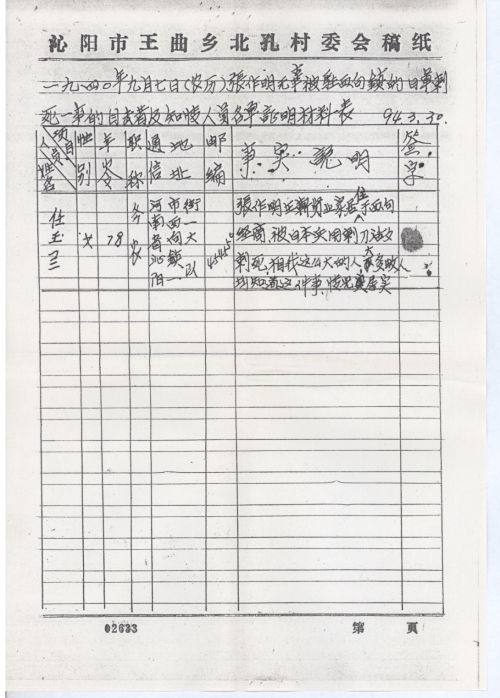 沁阳市王曲乡北孔村委会稿纸
一九四〇年九月七日(农历)張作明无辜被驻西向鎮的日軍刺
死一事的目击者及知情人員名单証明材料表 94.3.30.
項目 人員 姓名
性别
年令
职称
通信地址
邮编
事实説明
签字
任玉兰
女
78
务农
河南省沁阳
市西向鎮一
街一大队
454550
張作明正朝剪业实居住于西向
经商,被日本兵用刺刀活活
刺死,相我这么大的人,大多数人
均知道这件事,情况真居实
02633
第 页